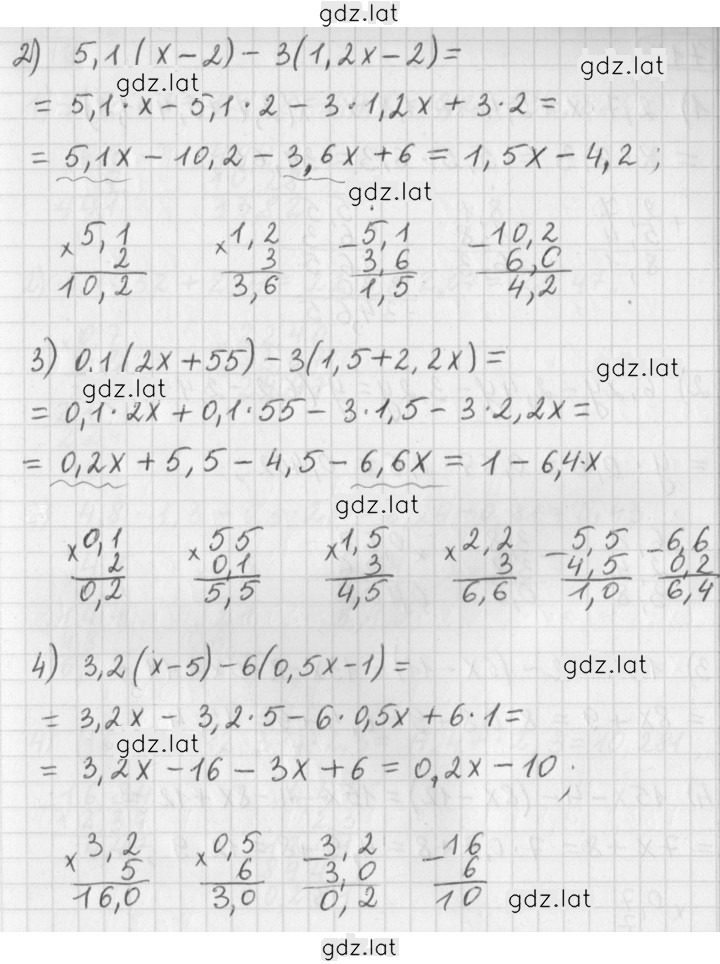 gdz.lat
2) 5,1(x-2)-3(1,2x-2)=
gdz.lat
gdz.lat
= 5,1·x-5,1·2-3·1,2x+3·2=
= 5,1x-10,2-3,6x+6=1,5x-4,2;
gdz.lat
× 5,1 × 1,2 - 5,1 - 10,2
2 3 3,6 6,0
10,2 3,6 1,5 4,2
3) 0.1(2x+55)-3(1,5+2,2x)=
gdz.lat
gdz.lat
= 0,1·2x+0,1·55-3·1,5-3·2,2x=
= 0,2x+5,5-4,5-6,6x=1-6,4·x
gdz.lat
× 0,1 × 55 × 1,5 × 2,2 - 5,5 - 6,6
2 0,1 3 3 4,5 0,2
0,2 5,5 4,5 6,6 1,0 6,4
4) 3,2(x-5)-6(0,5x-1)=
gdz.lat
= 3,2x-3,2·5-6·0,5x+6·1=
gdz.lat
= 3,2x-16-3x+6=0,2x-10;
× 3,2 × 0,5 - 3,2 - 16
5 6 3,0 6
16,0 3,0 0,2 10
gdz.lat
gdz.lat